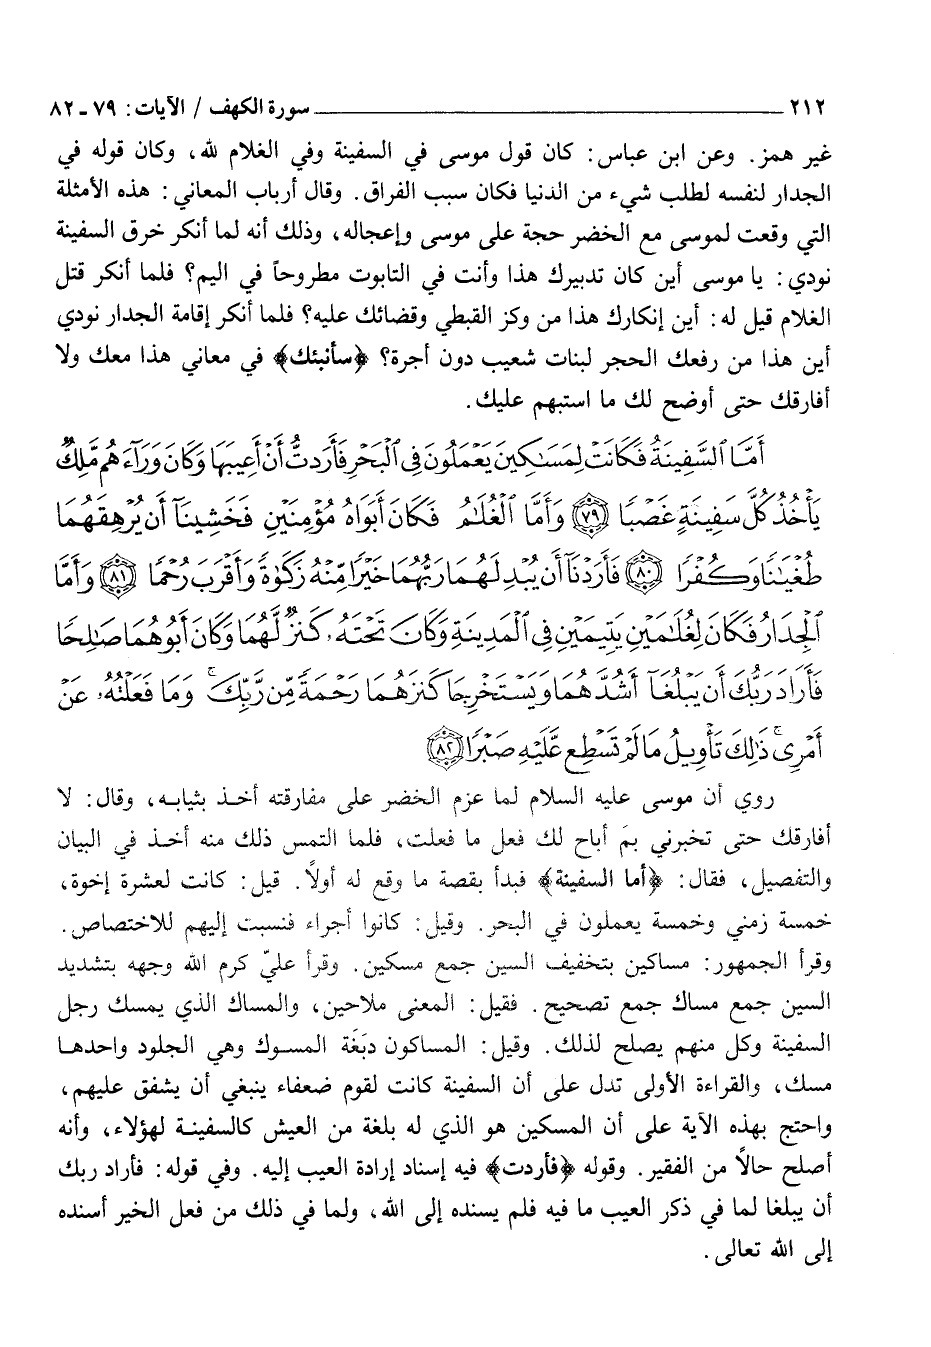 ٢١٢ سورة الكهف / الآيات: ٧٩ ـ ٨٢
غير همز. وعن ابن عباس: كان قول موسى في السفينة وفي الغلام لله، وكان قوله في
الجدار لنفسه لطلب شيء من الدنيا فكان سبب الفراق. وقال أرباب المعاني: هذه الأمثلة
التي وقعت لموسى مع الخضر حجة على موسى وإعجاله، وذلك أنه لما أنكر خرق السفينة
نودي: يا موسى أين كان تدبيرك هذا وأنت في التابوت مطروحاً في اليم؟ فلما أنكر قتل
الغلام قيل له: أين إنكارك هذا من وكز القبطي وقضائك عليه؟ فلما أنكر إقامة الجدار نودي
أين هذا من رفعك الحجر لبنات شعيب دون أجرة؟ ﴿سأنبئك﴾ في معاني هذا معك ولا
أفارقك حتى أوضح لك ما استبهم عليك.
أَمَّا ٱلسَّفِينَةُ فَكَانَتْ لِمَسَٰكِينَ يَعْمَلُونَ فِى ٱلْبَحْرِ فَأَرَدتُّ أَنْ أَعِيبَهَا وَكَانَ وَرَآءَهُم مَّلِكٌ
يَأْخُذُ كُلَّ سَفِينَةٍ غَصْبًا ﴿٧٩﴾ وَأَمَّا ٱلْغُلَٰمُ فَكَانَ أَبَوَاهُ مُؤْمِنَيْنِ فَخَشِينَآ أَن يُرْهِقَهُمَا
طُغْيَٰنًا وَكُفْرًا ﴿٨٠﴾ فَأَرَدْنَآ أَن يُبْدِلَهُمَا رَبُّهُمَا خَيْرًا مِّنْهُ زَكَوٰةً وَأَقْرَبَ رُحْمًا ﴿٨١﴾ وَأَمَّا
ٱلْجِدَارُ فَكَانَ لِغُلَٰمَيْنِ يَتِيمَيْنِ فِى ٱلْمَدِينَةِ وَكَانَ تَحْتَهُۥ كَنزٌ لَّهُمَا وَكَانَ أَبُوهُمَا صَٰلِحًا
فَأَرَادَ رَبُّكَ أَن يَبْلُغَآ أَشُدَّهُمَا وَيَسْتَخْرِجَا كَنزَهُمَا رَحْمَةً مِّن رَّبِّكَ ۚ وَمَا فَعَلْتُهُۥ عَنْ
أَمْرِى ۚ ذَٰلِكَ تَأْوِيلُ مَا لَمْ تَسْطِع عَّلَيْهِ صَبْرًا ﴿٨٢﴾
روي أن موسى عليه السلام لما عزم الخضر على مفارقته أخذ بثيابه، وقال: لا
أفارقك حتى تخبرني بمَ أباح لك فعل ما فعلت، فلما التمس ذلك منه أخذ في البيان
والتفصيل، فقال: ﴿أما السفينة﴾ فبدأ بقصة ما وقع له أولاً. قيل: كانت لعشرة إخوة،
خمسة زمني وخمسة يعملون في البحر. وقيل: كانوا أجراء فنسبت إليهم للاختصاص.
وقرأ الجمهور: مساكين بتخفيف السين جمع مسكين. وقرأ عليّ كرم الله وجهه بتشديد
السين جمع مساك جمع تصحيح. فقيل: المعنى ملاحين، والمساك الذي يمسك رجل
السفينة وكل منهم يصلح لذلك. وقيل: المساكون دبَغَة المسوك وهي الجلود واحدها
مسك، والقراءة الأولى تدل على أن السفينة كانت لقوم ضعفاء ينبغي أن يشفق عليهم،
واحتج بهذه الآية على أن المسكين هو الذي له بلغة من العيش كالسفينة لهؤلاء، وأنه
أصلح حالاً من الفقير. وقوله ﴿فأردت﴾ فيه إسناد إرادة العيب إليه. وفي قوله: فأراد ربك
أن يبلغا لما في ذكر العيب ما فيه فلم يسنده إلى الله، ولما في ذلك من فعل الخير أسنده
إلى الله تعالى.